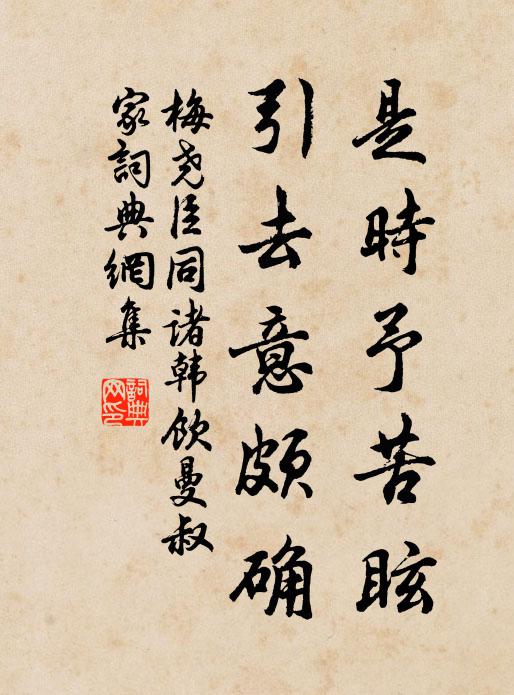 是時予苦眩
引去意頗确
梅尧臣同诸韩饮曼叔
家詞典網集
詞典
网印